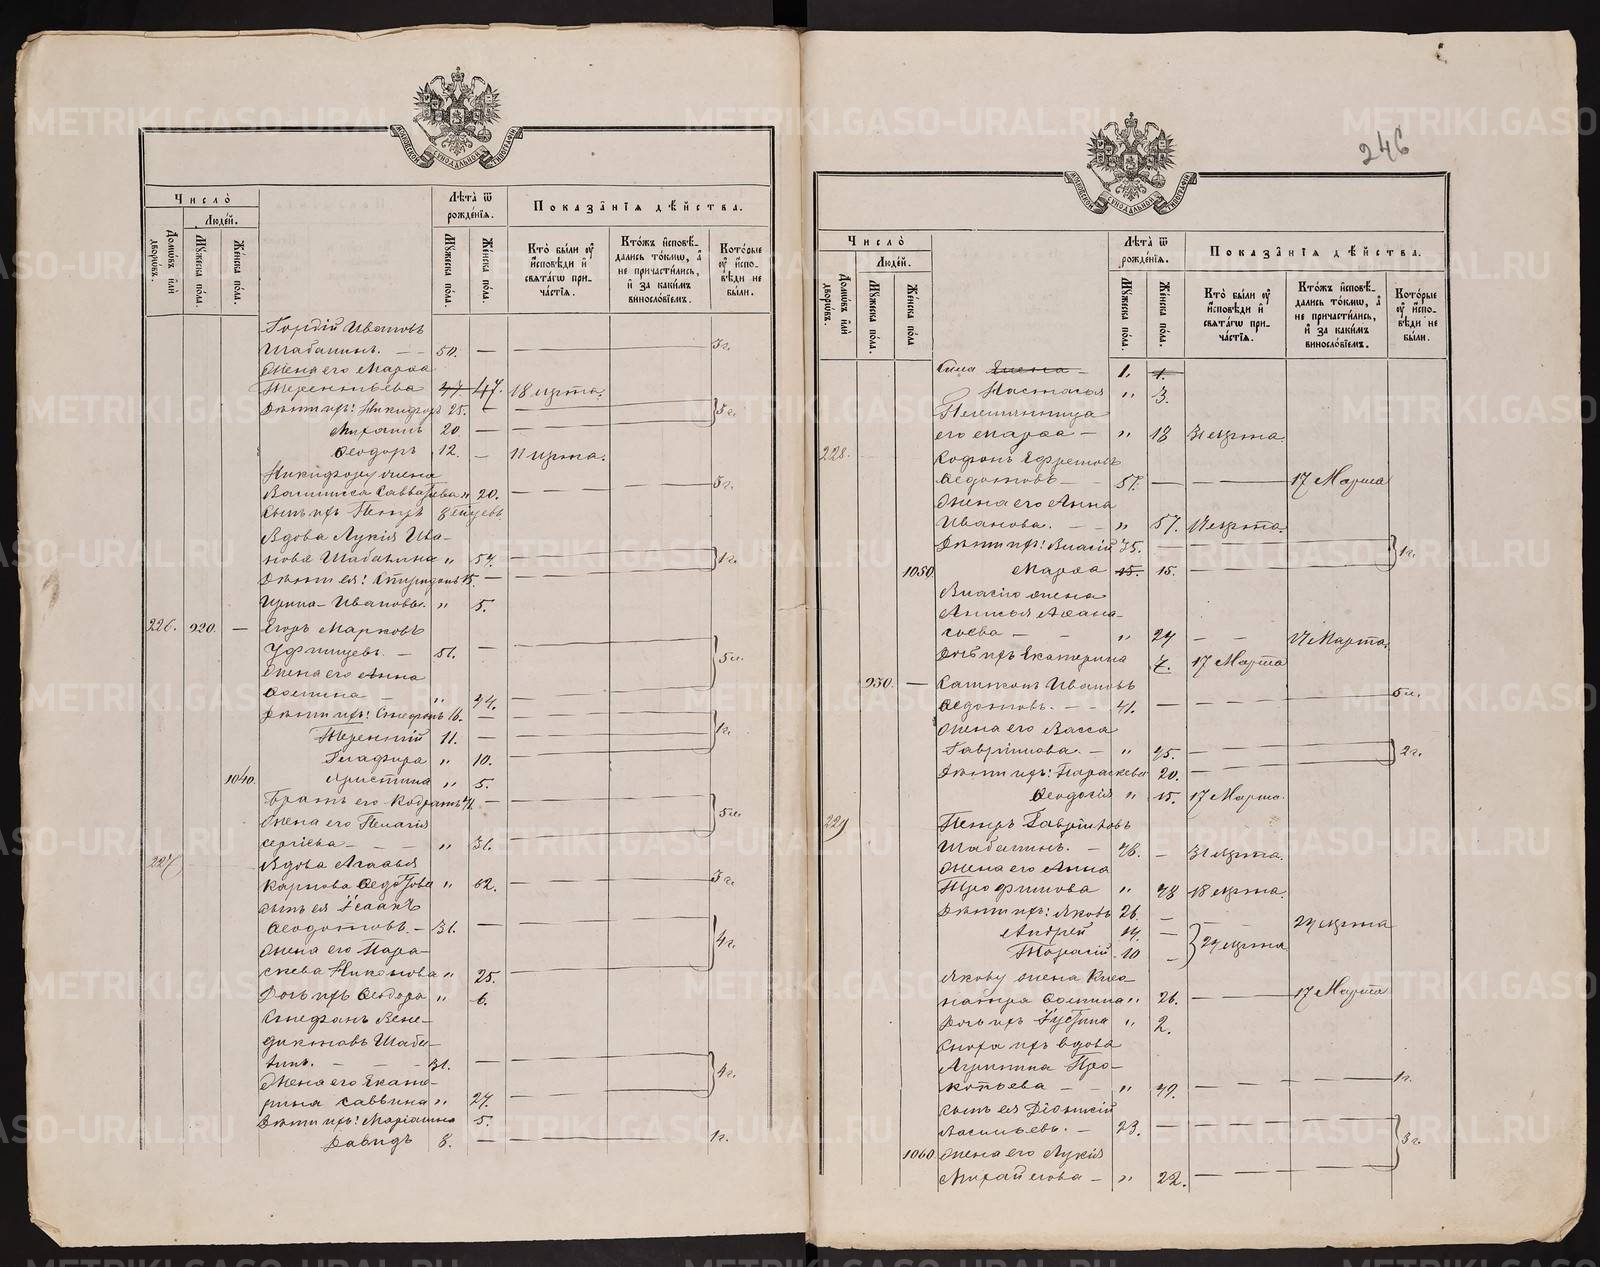 МОСКОВСКОЙ СУНОДАЛЬНОЙ ТИПОГРАФІИ
Число̀
Людéй.
Домѡвъ или дворѡвъ.
Мꙋжеска пола.
Женска пола.
Лѣта ѿ рожденїѧ.
Мꙋжеска пола.
Женска пола.
Показанїѧ дѣйства.
Кто были ꙋ исповѣди и свѧтагѡ причастїѧ.
Ктожъ исповѣдались токмѡ, а не причастились, и за какимъ винословїемъ.
Которые ꙋ исповѣди не были.
Гордій Ивановъ
Шабалинъ. — — 50. — 3 г.
Жена его Марѳа
Терентьева 47. 47. 18 марта.
Дѣти ихъ: Никифоръ 25. 5 г.
Михаилъ 20. —
Ѳеодоръ 12. — 11 марта.
Никифору жена
Василисса Савватѣева „ 20. 5 г.
Сынъ ихъ Петръ
Вдова Лукія Ива-
нова Шабалина „ 54. 1 г.
Дѣти ея: Спиридонъ 15. —
Ирина Ивановы. „ 5.
226. 920. — Егоръ Марковъ
— 51. — 5 л.
Жена его Анна
Ѳомина — „ 44.
Дѣти ихъ: Стефанъ 16. — 1 г.
Терентій 11. —
Глафира „ 10.
1040. Христина „ 5.
Братъ его Кодратъ 42. — 5 л.
Жена его Пелагія
Сергіева — — „ 31.
227 Вдова Агаѳья
Карпова Ѳедотова „ 62. 3 г.
Сынъ ея Исаакъ
Ѳеодотовъ. — 31. — 4 г.
Жена его Пара-
скева Никонова „ 25.
Дочь ихъ Ѳеодора „ 6.
Стефанъ Вене-
диктовъ Шаба-
линъ. — — — 31. — 4 г.
Жена его Екате-
рина Саввина „ 27.
Дѣти ихъ: Маріамна 5.
Давидъ 8. — 1 г.
246
МОСКОВСКОЙ СУНОДАЛЬНОЙ ТИПОГРАФІИ
Число̀
Людéй.
Домѡвъ или дворѡвъ.
Мꙋжеска пола.
Женска пола.
Лѣта ѿ рожденїѧ.
Мꙋжеска пола.
Женска пола.
Показанїѧ дѣйства.
Кто были ꙋ исповѣди и свѧтагѡ причастїѧ.
Ктожъ исповѣдались токмѡ, а не причастились, и за какимъ винословїемъ.
Которые ꙋ исповѣди не были.
Сила 1. 1.
Настасья „ 3.
Племянница
его Марѳа — „ 18 31 марта.
228. Софонъ Ефремовъ
Ѳедотовъ — 57. — 17 Марта
Жена его Анна
Иванова. — — „ 57. 17 марта.
Дѣти ихъ: Власій 35. — 1 г.
1050. Марѳа 15. 15. —
Власію жена
Анисья Аѳана-
сьева — — „ 24 — — 17 Марта.
Дочь ихъ Екатерина 4. 17 Марта
930. — Сампсонъ Ивановъ
Ѳедотовъ. — 41. — 5 л.
Жена его Васса
Гавриилова. — „ 45. — 2 г.
Дѣти ихъ: Параскева 20. —
Ѳеодосія „ 15. 17 Марта.
229 Петръ Гавриловъ
Шабалинъ. — 48. — 31 марта.
Жена его Анна
Трофимова „ 48 18 марта.
Дѣти ихъ: Яковъ 26. — 24 марта
Андрей 14. — 24 марта
Тарасій 10 —
Якову жена Клео-
патра Ѳомина „ 26. — 17 Марта
Дочь ихъ Іустина „ 2.
Сноха ихъ вдова
Агрипина Про-
копьева — — „ 49. — 1 г.
Сынъ ея Діонисій
Васильевъ. — 23. — 3 г.
1060. Жена его Лукія
Михайлова — „ 22. —
METRIKI.GASO-URAL.RU